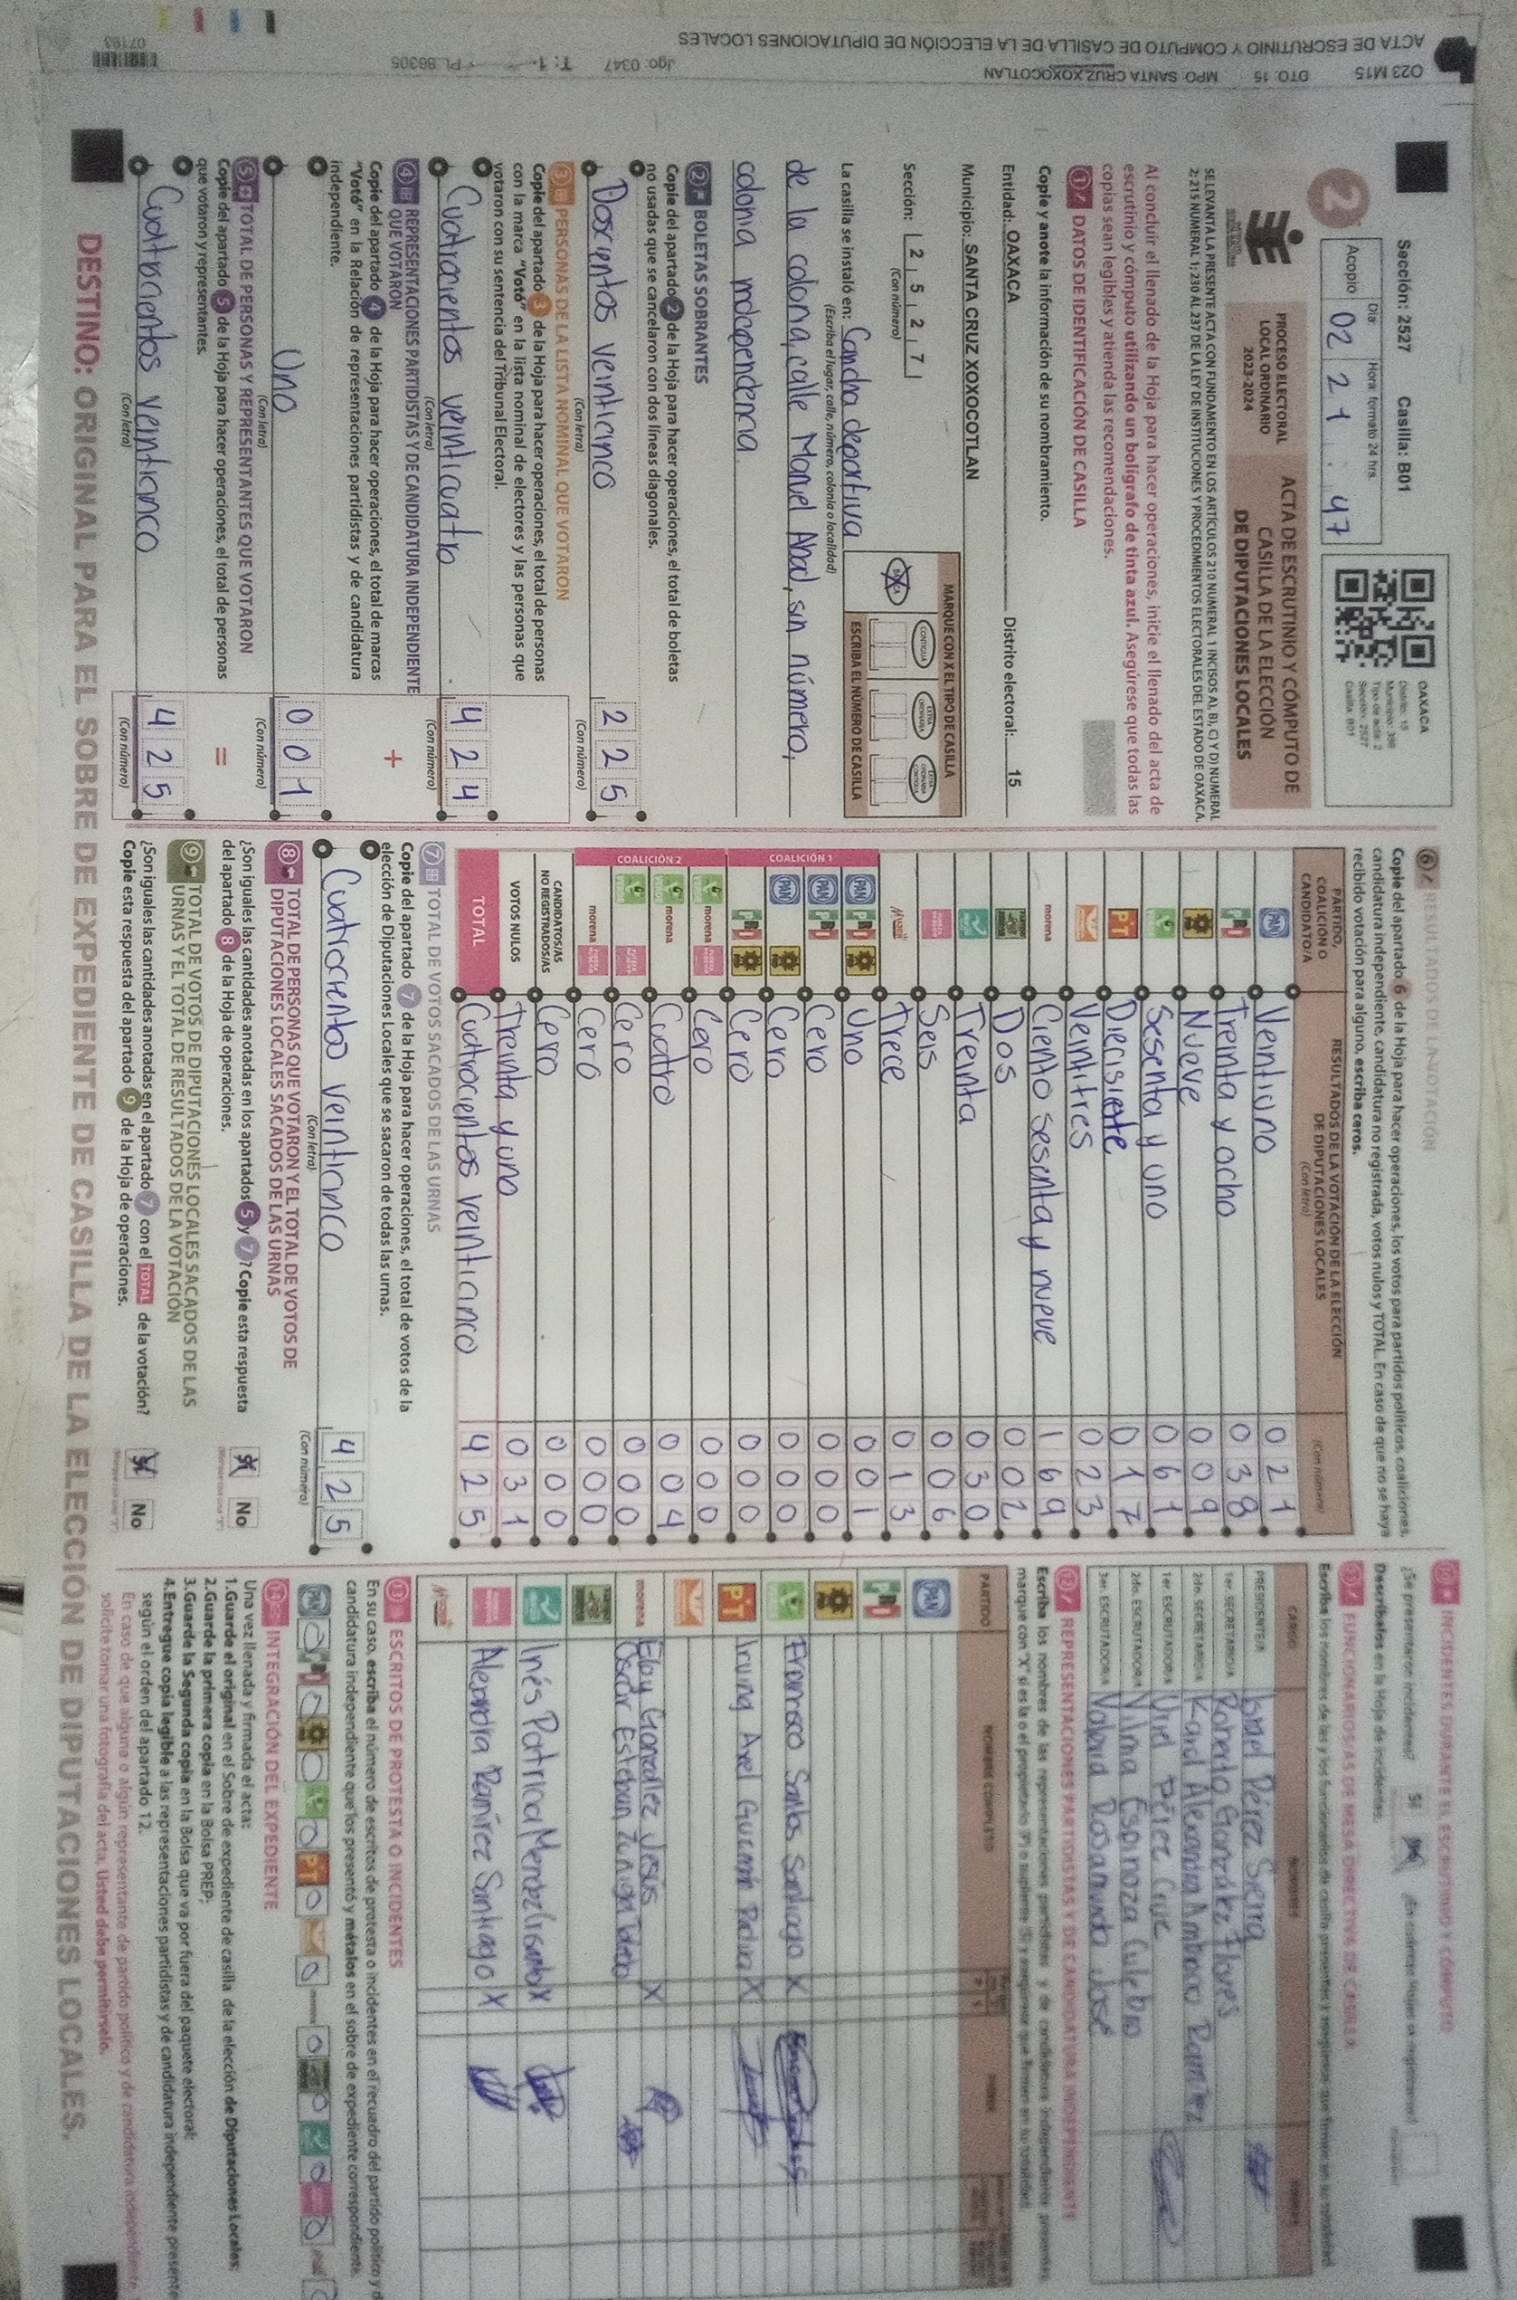 ACTA DE ESCRUTINIO Y CÓMPUTO DE CASILLA DE LA ELECCIÓN DE DIPUTACIONES LOCALES
023 M15 DTO: 15 MPO: SANTA CRUZ XOXOCOTLAN
Jgo: 0347 T: 1
07193
Sección: 2527 Casilla: B01
2
Día Hora: formato 24 hrs.
Acopio 02 21 : 47
OAXACA
Distrito: 15
Tipo de acta: 2
Sección: 2527
Casilla: B01
PROCESO ELECTORAL
LOCAL ORDINARIO
2023-2024
ACTA DE ESCRUTINIO Y CÓMPUTO DE
CASILLA DE LA ELECCIÓN
DE DIPUTACIONES LOCALES
SE LEVANTA LA PRESENTE ACTA CON FUNDAMENTO EN LOS ARTÍCULOS 210 NUMERAL 1 INCISOS A), B), C) Y D) NUMERAL
2; 215 NUMERAL 1; 230 AL 237 DE LA LEY DE INSTITUCIONES Y PROCEDIMIENTOS ELECTORALES DEL ESTADO DE OAXACA.
Al concluir el llenado de la Hoja para hacer operaciones, inicie el llenado del acta de
escrutinio y cómputo utilizando un bolígrafo de tinta azul. Asegúrese que todas las
copias sean legibles y atienda las recomendaciones.
1 DATOS DE IDENTIFICACIÓN DE CASILLA
Copie y anote la información de su nombramiento.
Entidad: OAXACA Distrito electoral: 15
Municipio: SANTA CRUZ XOXOCOTLAN
Sección: 2 5 2 7
(Con número)
MARQUE CON X EL TIPO DE CASILLA
BÁSICA CONTIGUA
ESCRIBA EL NÚMERO DE CASILLA
La casilla se instaló en: Cancha deportiva
(Escriba el lugar, calle, número, colonia o localidad)
de la colonia, calle Manuel Abad, sin número,
colonia independencia.
2 BOLETAS SOBRANTES
Copie del apartado 2 de la Hoja para hacer operaciones, el total de boletas
no usadas que se cancelaron con dos líneas diagonales.
Doscientos veinticinco 2 2 5
(Con letra) (Con número)
3 PERSONAS DE LA LISTA NOMINAL QUE VOTARON
Copie del apartado 3 de la Hoja para hacer operaciones, el total de personas
con la marca "Votó" en la lista nominal de electores y las personas que
votaron con su sentencia del Tribunal Electoral.
Cuatrocientos veinticuatro 4 2 4
(Con letra) (Con número)
4 REPRESENTACIONES PARTIDISTAS Y DE CANDIDATURA INDEPENDIENTE
QUE VOTARON
Copie del apartado 4 de la Hoja para hacer operaciones, el total de marcas
"Votó" en la Relación de representaciones partidistas y de candidatura
independiente.
+
Uno 0 0 1
(Con letra) (Con número)
5 TOTAL DE PERSONAS Y REPRESENTANTES QUE VOTARON
Copie del apartado 5 de la Hoja para hacer operaciones, el total de personas
que votaron y representantes.
=
Cuatrocientos veinticinco 4 2 5
(Con letra) (Con número)
6 RESULTADOS DE LA VOTACIÓN
Copie del apartado 6 de la Hoja para hacer operaciones, los votos para partidos políticos, coaliciones,
candidatura independiente, candidatura no registrada, votos nulos y TOTAL. En caso de que no se haya
recibido votación para alguno, escriba ceros.
PARTIDO, COALICIÓN O CANDIDATO/A
RESULTADOS DE LA VOTACIÓN DE LA ELECCIÓN DE DIPUTACIONES LOCALES
(Con letra) (Con número)
PAN Veintiuno 021
PRI Treinta y ocho 038
Nueve 009
Sesenta y uno 061
PT Diecisiete 017
Veintitres 023
morena Ciento sesenta y nueve 169
Dos 002
Treinta 030
Seis 006
Trece 013
COALICIÓN 1
PAN PRI Uno 001
PAN PRI Cero 000
PAN Cero 000
PRI Cero 000
COALICIÓN 2
morena Cero 000
morena Cuatro 004
Cero 000
morena Cero 000
CANDIDATOS/AS NO REGISTRADOS/AS Cero 000
VOTOS NULOS Treinta y uno 031
TOTAL Cuatrocientos veinticinco 425
7 TOTAL DE VOTOS SACADOS DE LAS URNAS
Copie del apartado 7 de la Hoja para hacer operaciones, el total de votos de la
elección de Diputaciones Locales que se sacaron de todas las urnas.
Cuatrociento veinticinco 4 2 5
(Con letra) (Con número)
8 TOTAL DE PERSONAS QUE VOTARON Y EL TOTAL DE VOTOS DE
DIPUTACIONES LOCALES SACADOS DE LAS URNAS
¿Son iguales las cantidades anotadas en los apartados 5 y 7? Copie esta respuesta
del apartado 8 de la Hoja de operaciones.
Sí No
9 TOTAL DE VOTOS DE DIPUTACIONES LOCALES SACADOS DE LAS
URNAS Y EL TOTAL DE RESULTADOS DE LA VOTACIÓN
¿Son iguales las cantidades anotadas en el apartado 7 con el TOTAL de la votación?
Copie esta respuesta del apartado 9 de la Hoja de operaciones.
Sí No
10 INCIDENTES DURANTE EL ESCRUTINIO Y CÓMPUTO
¿Se presentaron incidentes? Sí No
Descríbalos en la Hoja de incidentes.
11 FUNCIONARIOS/AS DE MESA DIRECTIVA DE CASILLA
CARGO NOMBRES
PRESIDENTE/A Israel Pérez Sierra
1er. SECRETARIO/A Roberto González Flores
2do. SECRETARIO/A Karol Alexandra Ambrocio Ramírez
1er. ESCRUTADOR/A Uriel Pérez Cruz
2do. ESCRUTADOR/A Vilma Espinoza Culebro
3er. ESCRUTADOR/A Valeria Rosamunda José
12 REPRESENTACIONES PARTIDISTAS Y DE CANDIDATURA INDEPENDIENTE
Escriba los nombres de las representaciones partidistas y de candidatura independiente presentes,
marque con "X" si es la o el propietario (P) o suplente (S) y asegúrese que firmen en su totalidad.
PARTIDO NOMBRE COMPLETO
PAN
PRI
Francisco Santos Santiago X
PT Irving Axel Guzmán X
morena Eloy González Jesús X
Oscar Esteban Zuñiga Toledo
Inés Patricia Mendez X
Alexandra Ramírez Santiago X
13 ESCRITOS DE PROTESTA O INCIDENTES
En su caso, escriba el número de escritos de protesta o incidentes en el recuadro del partido político y
candidatura independiente que los presentó y métalos en el sobre de expediente correspondiente.
14 INTEGRACIÓN DEL EXPEDIENTE
Una vez llenada y firmada el acta:
1.Guarde el original en el Sobre de expediente de casilla de la elección de Diputaciones Locales;
2.Guarde la primera copia en la Bolsa PREP;
3.Guarde la Segunda copia en la Bolsa que va por fuera del paquete electoral;
4.Entregue copia legible a las representaciones partidistas y de candidatura independiente
según el orden del apartado 12.
En caso de que alguna o algún representante de partido político y de candidatura independiente
solicite tomar una fotografía del acta, Usted debe permitírselo.
DESTINO: ORIGINAL PARA EL SOBRE DE EXPEDIENTE DE CASILLA DE LA ELECCIÓN DE DIPUTACIONES LOCALES.